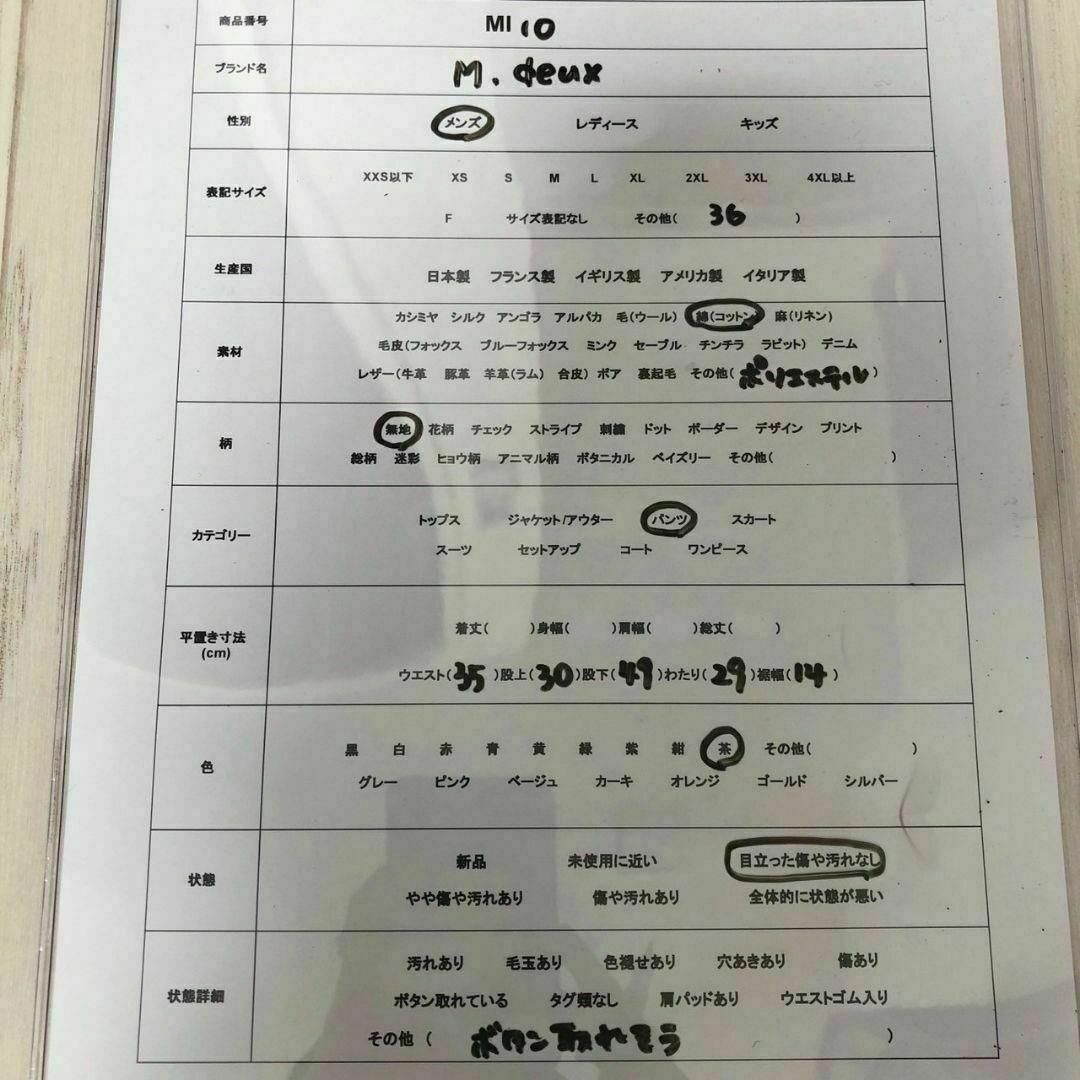 商品番号 MI 10
ブランド名 M. deux
性別 メンズ レディース キッズ
表記サイズ XXS以下 XS S M L XL 2XL 3XL 4XL以上
F サイズ表記なし その他( 36 )
生産国 日本製 フランス製 イギリス製 アメリカ製 イタリア製
素材 カシミヤ シルク アンゴラ アルパカ 毛(ウール) 綿(コットン) 麻(リネン)
毛皮(フォックス ブルーフォックス ミンク セーブル チンチラ ラビット) デニム
レザー(牛革 豚革 羊革(ラム) 合皮) ボア 裏起毛 その他( ポリエステル )
柄 無地 花柄 チェック ストライプ 刺繍 ドット ボーダー デザイン プリント
総柄 迷彩 ヒョウ柄 アニマル柄 ボタニカル ペイズリー その他( )
カテゴリー トップス ジャケット/アウター パンツ スカート
スーツ セットアップ コート ワンピース
平置き寸法
(cm)
着丈( )身幅( )肩幅( )総丈( )
ウエスト(35)股上(30)股下(49)わたり(29)裾幅(14)
色 黒 白 赤 青 黄 緑 紫 紺 茶 その他( )
グレー ピンク ベージュ カーキ オレンジ ゴールド シルバー
状態 新品 未使用に近い 目立った傷や汚れなし
やや傷や汚れあり 傷や汚れあり 全体的に状態が悪い
状態詳細 汚れあり 毛玉あり 色褪せあり 穴あきあり 傷あり
ボタン取れている タグ類なし 肩パッドあり ウエストゴム入り
その他 ( ボタン取れそう )